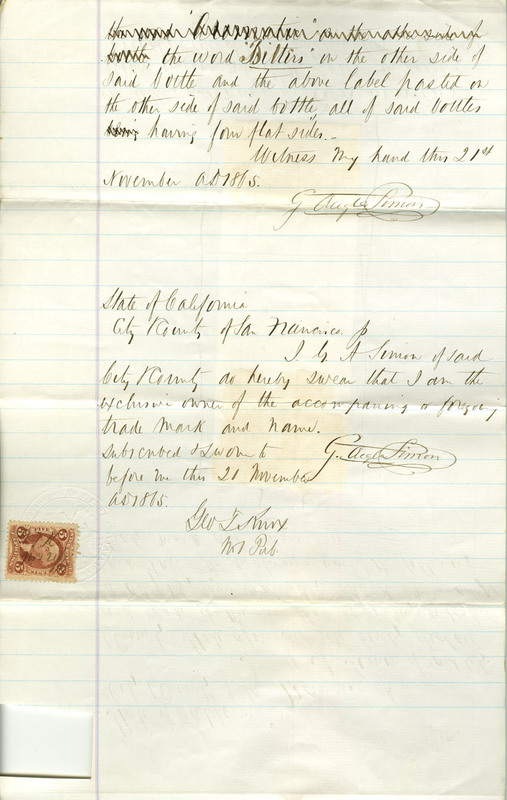 the word "Aromatic" on the other side of
bottle, the word "Bitters" on the other side of
said bottle and the above label pasted on
the other side of said bottle, all of said bottles
being having four flat sides.—
Witness my hand this 21st
November AD 1865.
G. Simon
State of California
City & County of San Francisco
I G A Simon of said
City & County do hereby swear that I am the
exclusive owner of the accompaning or foregoing
trade mark and name.
subscribed & sworn to
G. Simon
before me this 21 November
AD 1865.
Geo T Knox
Not Pub.
5
5